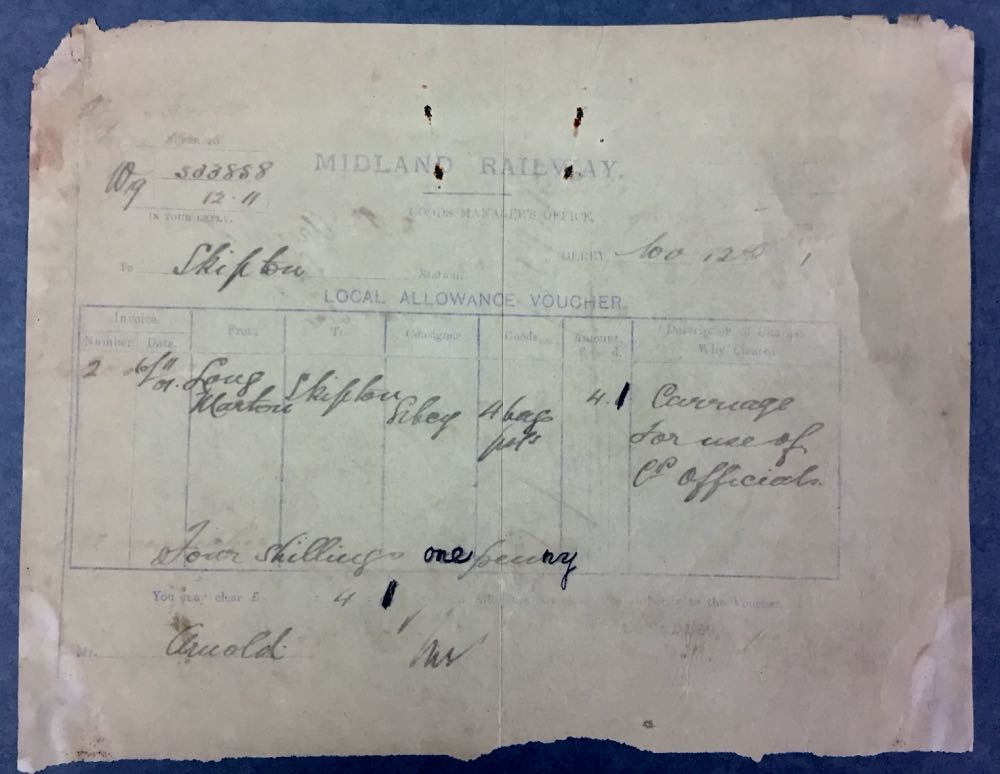 REFER TO
Dg 533858
12.11
IN YOUR REPLY.
MIDLAND RAILWAY.
GOODS MANAGER'S OFFICE,
DERBY, Nov 12 1
To Skipton Station.
LOCAL ALLOWANCE VOUCHER.
Invoice. From To Consignee Goods. Amount. Description of Charges
Number Date. £ s d. Why Cleared
2 6/11 Long Skipton 4 bags 4.1 Carriage
01. Marton for use of
Co Officials.
Four Shillings one penny
You may clear £ : 4 : 1 to the Voucher.
Mr. Arnold